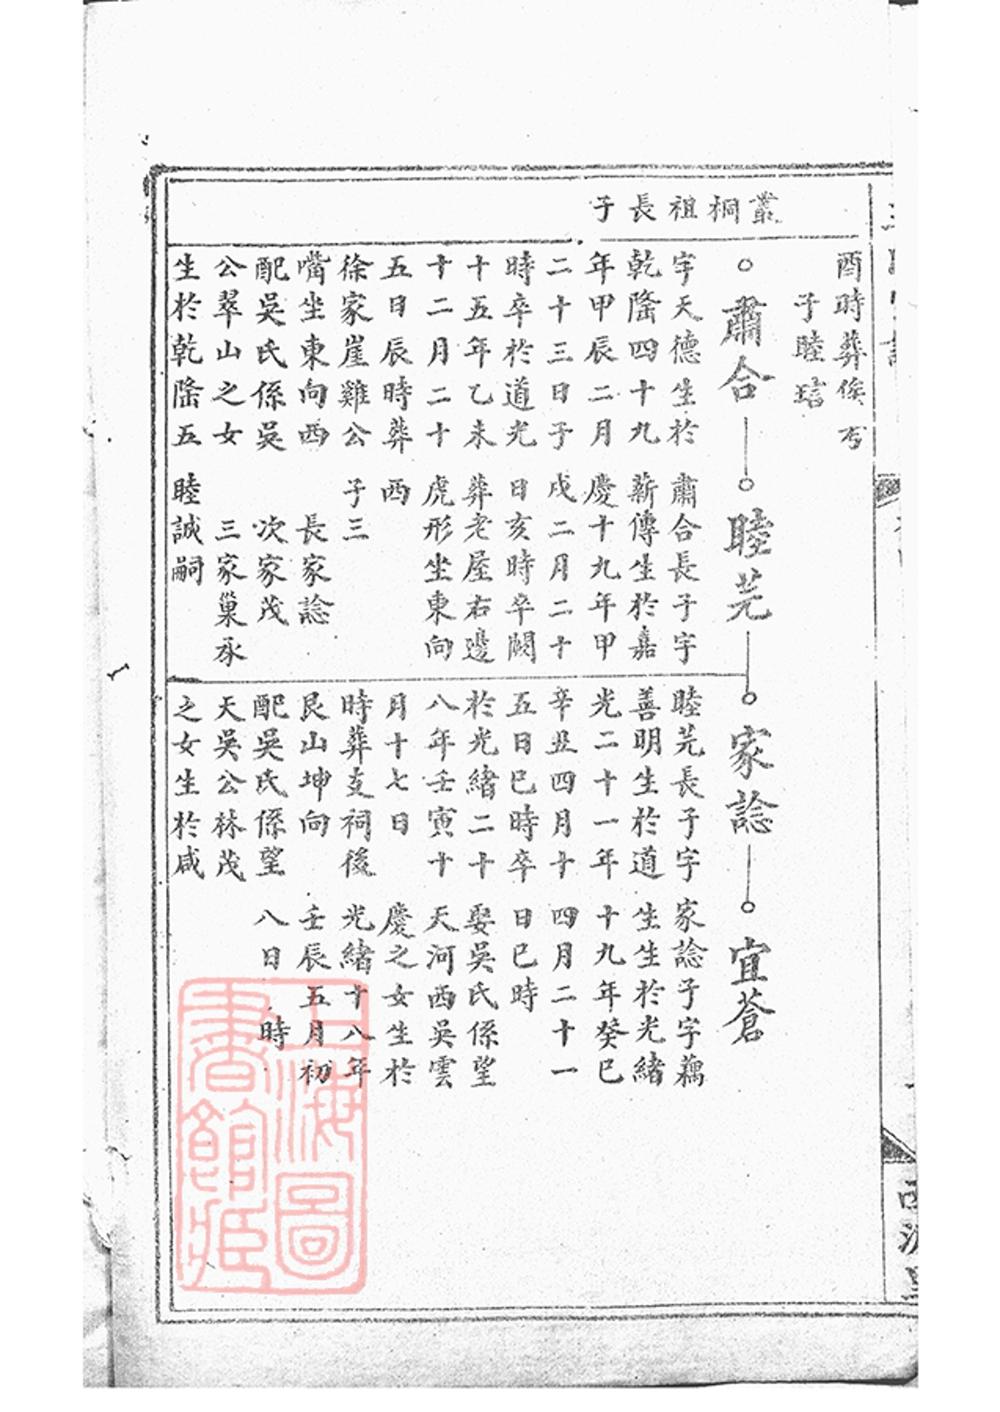 叢桐祖長子
酉時葬俟丂
子睦琂
肅合
字天德生於
乾隆四十九
年甲辰二月
二十三日子
時卒於道光
十五年乙未
十二月二十
五日辰時葬
徐家崖雞公
嘴坐東向西
配吳氏係吳
公翠山之女
生於乾隆五
睦芫
肅合長子字
薪傳生於嘉
慶十九年甲
戌二月二十
日亥時卒闕
葬老屋右邊
虎形坐東向
西
子三
長家諗
次家茂
三家巢承
睦誠嗣
家諗
睦芫長子字
善明生於道
光二十一年
辛丑四月十
五日巳時卒
於光緒二十
八年壬寅十
月十七日
時葬支祠後
艮山坤向
配吳氏係望
天吳公林茂
之女生於咸
宜蒼
家諗子字藕
生生於光緒
十九年癸巳
四月二十一
日巳時
娶吳氏係望
天河西吳雲
慶之女生於
光緒十八年
壬辰五月初
八日 時
上海圖
書館藏